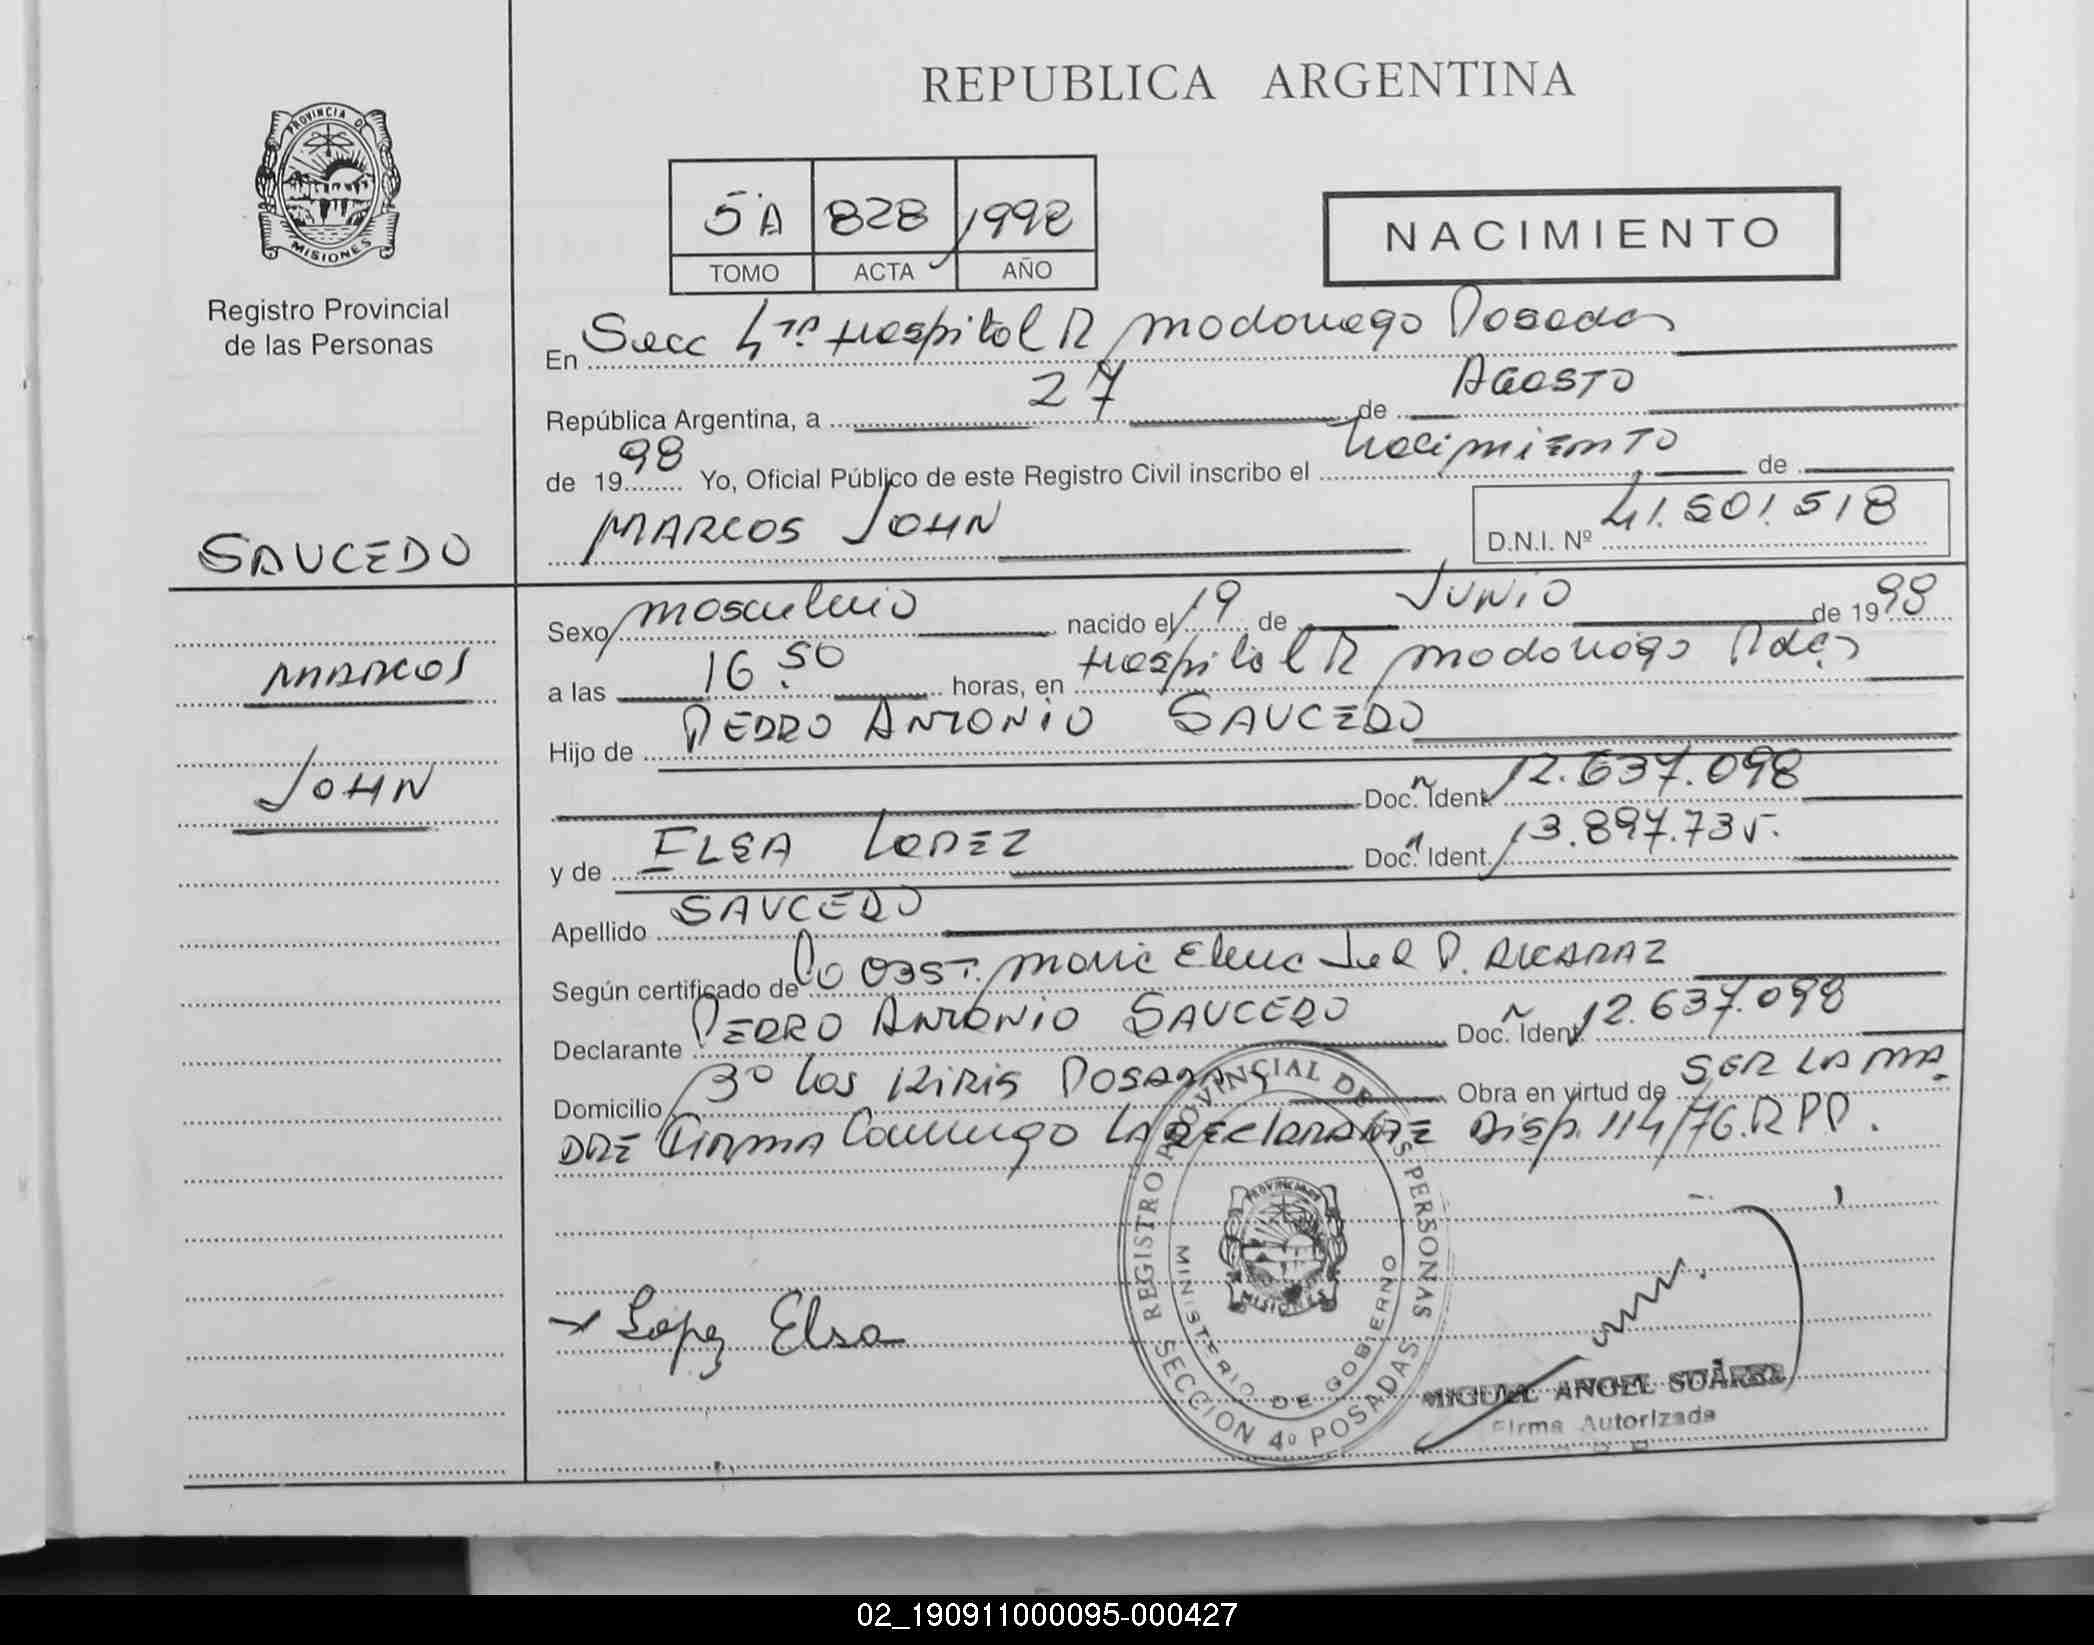 REPUBLICA ARGENTINA
PROVINCIA DE
MISIONES
Registro Provincial
de las Personas
5ºA 828 1998
TOMO ACTA AÑO
NACIMIENTO
En Secc 4ta Hospital R Madariaga Posadas
República Argentina, a 27 de AGOSTO
de 1998 Yo, Oficial Público de este Registro Civil inscribo el nacimiento de
MARCOS JOHN D.N.I. Nº 41.501.518
SAUCEDO
MARCOS
JOHN
Sexo masculino nacido el 19 de JUNIO de 1998
a las 16:50 horas, en Hospital R Madariaga Pdas
Hijo de PEDRO ANTONIO SAUCEDO
Doc. Ident. 12.637.098
y de ELSA LOPEZ Doc. Ident. 13.897.735.
Apellido SAUCEDO
Según certificado de OBST. Maria Elena del P. ALCARAZ
Declarante PEDRO ANTONIO SAUCEDO Doc. Ident. 12.637.098
Domicilio Bº Los KIRIS POSADAS Obra en virtud de SER LA MA
DRE FIRMA Conmigo LA DEClARANTE Disp. 114/76.RPP.
REGISTRO PROVINCIAL DE LAS PERSONAS
MINISTERIO DE GOBIERNO
PROVINCIA DE
MISIONES
SECCION 4º POSADAS
Lopez Elsa
MIGUEL ANGEL SUÁREZ
Firma Autorizada
02_190911000095-000427